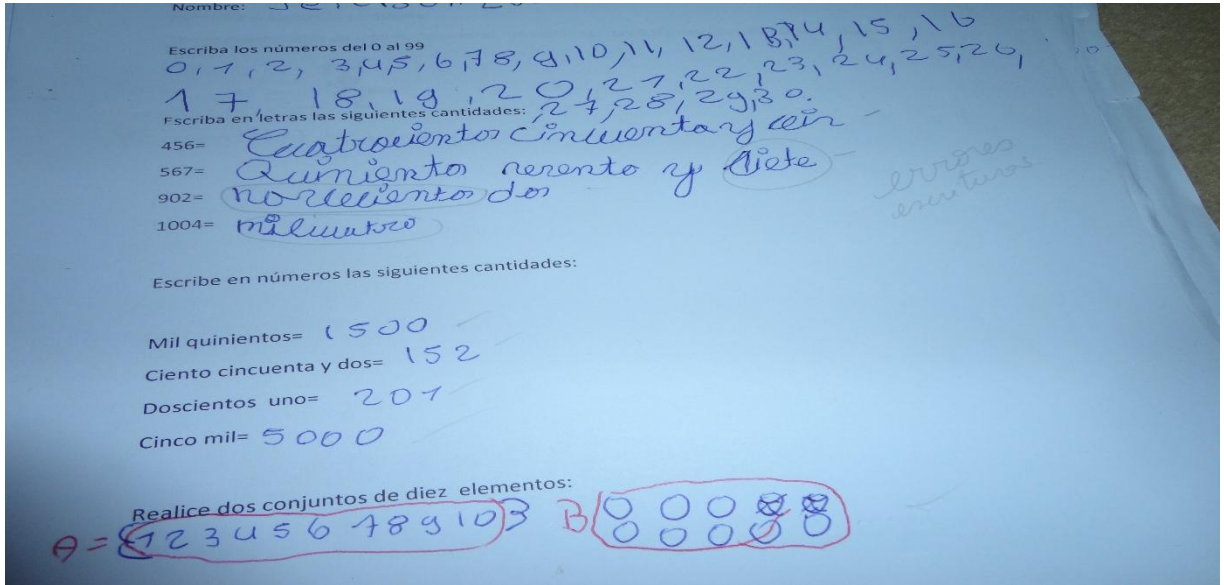 Nombre:
Escriba los números del 0 al 99
0, 1, 2, 3, 4, 5, 6, 7 8, 9, 10, 11, 12, 13, 14, 15, 16
17, 18, 19, 20, 21, 22, 23, 24, 25, 26,
27, 28, 29, 30.
Escriba en letras las siguientes cantidades:
456= Cuatrocientos cincuenta y ceir
567= Quiniento resento y siete
902= norceciento dos
1004= milcuatro
errores
escrituras
Escribe en números las siguientes cantidades:
Mil quinientos= 1500
Ciento cincuenta y dos= 152
Doscientos uno= 201
Cinco mil= 5000
Realice dos conjuntos de diez elementos:
A = {1 2 3 4 5 6 7 8 9 10} B